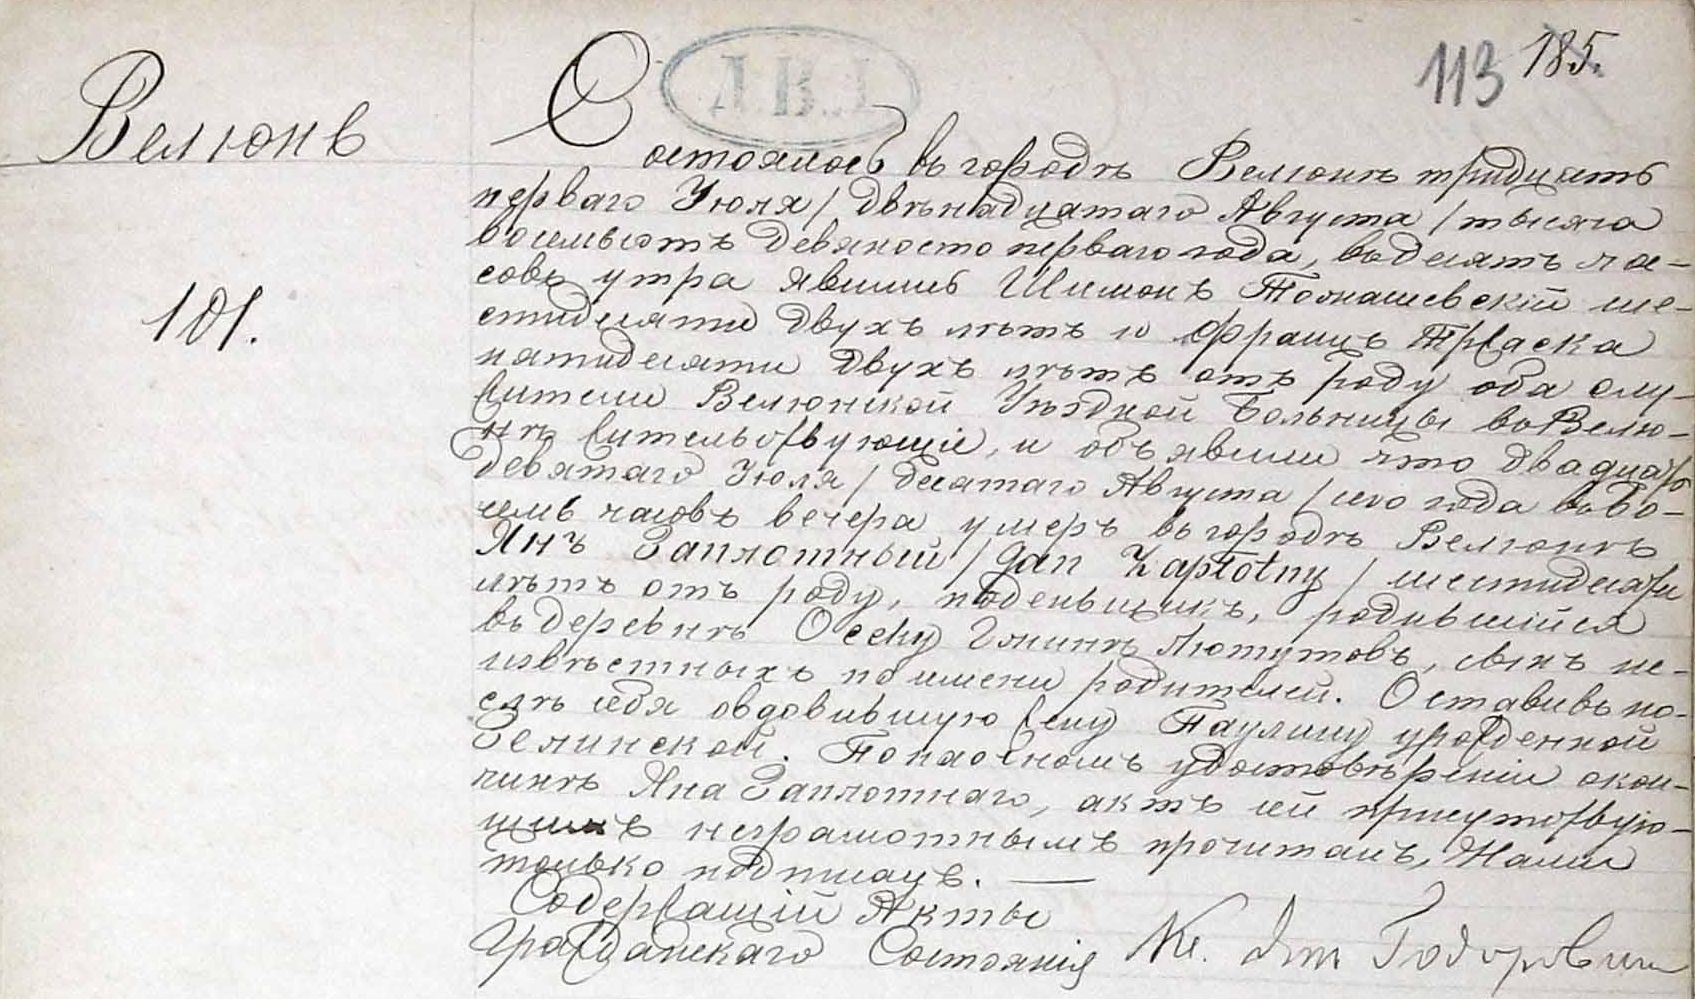 113 185.
Велюнь
101.
Состоялось въ городѣ Велюнѣ тридцать
перваго Іюля / двѣнадцатаго Августа / тысяча
восемьсотъ девяносто перваго года, въ десять ча-
совъ утра явились Шимонъ Томашевскій ше-
стидесяти двухъ лѣтъ и Францъ
пятидесяти двухъ лѣтъ отъ роду оба слу-
жители Велюнской Уѣздной Больницы въ Велю-
нѣ жительствующіе, и объявили что двадцать
девятаго Іюля / десятаго Августа / сего года въ во-
семь часовъ вечера умеръ въ городѣ Велюнѣ
Янъ Заплотный / Jan Zapłotny / шестидесяти
лѣтъ отъ роду, поденьщикъ, родившійся
въ деревнѣ Гминѣ Лютутовъ, сынъ не-
извѣстныхъ по имени родителей. Оставивъ по-
слѣ себя овдовѣвшую жену Паулину урожденной
Зелинской. По наочномъ удостовѣреніи о кон-
чинѣ Яна Заплотнаго, актъ сей присутствую-
щимъ неграмотнымъ прочитанъ, Нами
только подписанъ. —
Содержащій Акты
Гражданскаго Состоянія Кс.